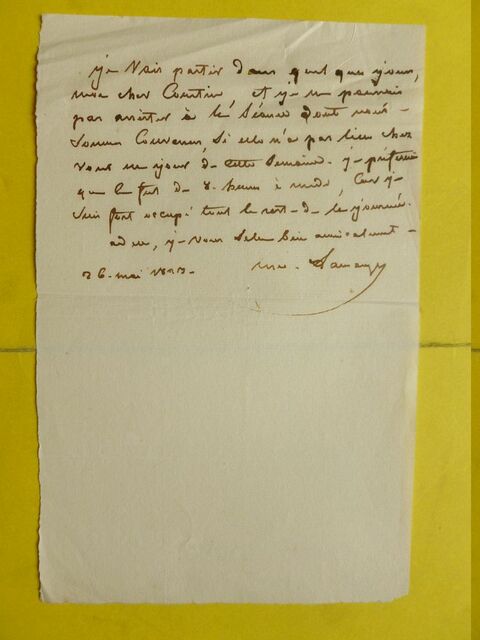 je Vais partir Dans quel que jours,
mon cher Cousin et je ne pourrais
pas assister à la Séance dont nous
Sommes Convenus, Si elle n'a pas lieu chez
vous un jour de cette Semaine. je préfererais
que ce fut de 8. heures à midi, Car je
Suis fort occupé tout le reste de la journée.
adieu, je vous Salue bien amicalement
26. mai